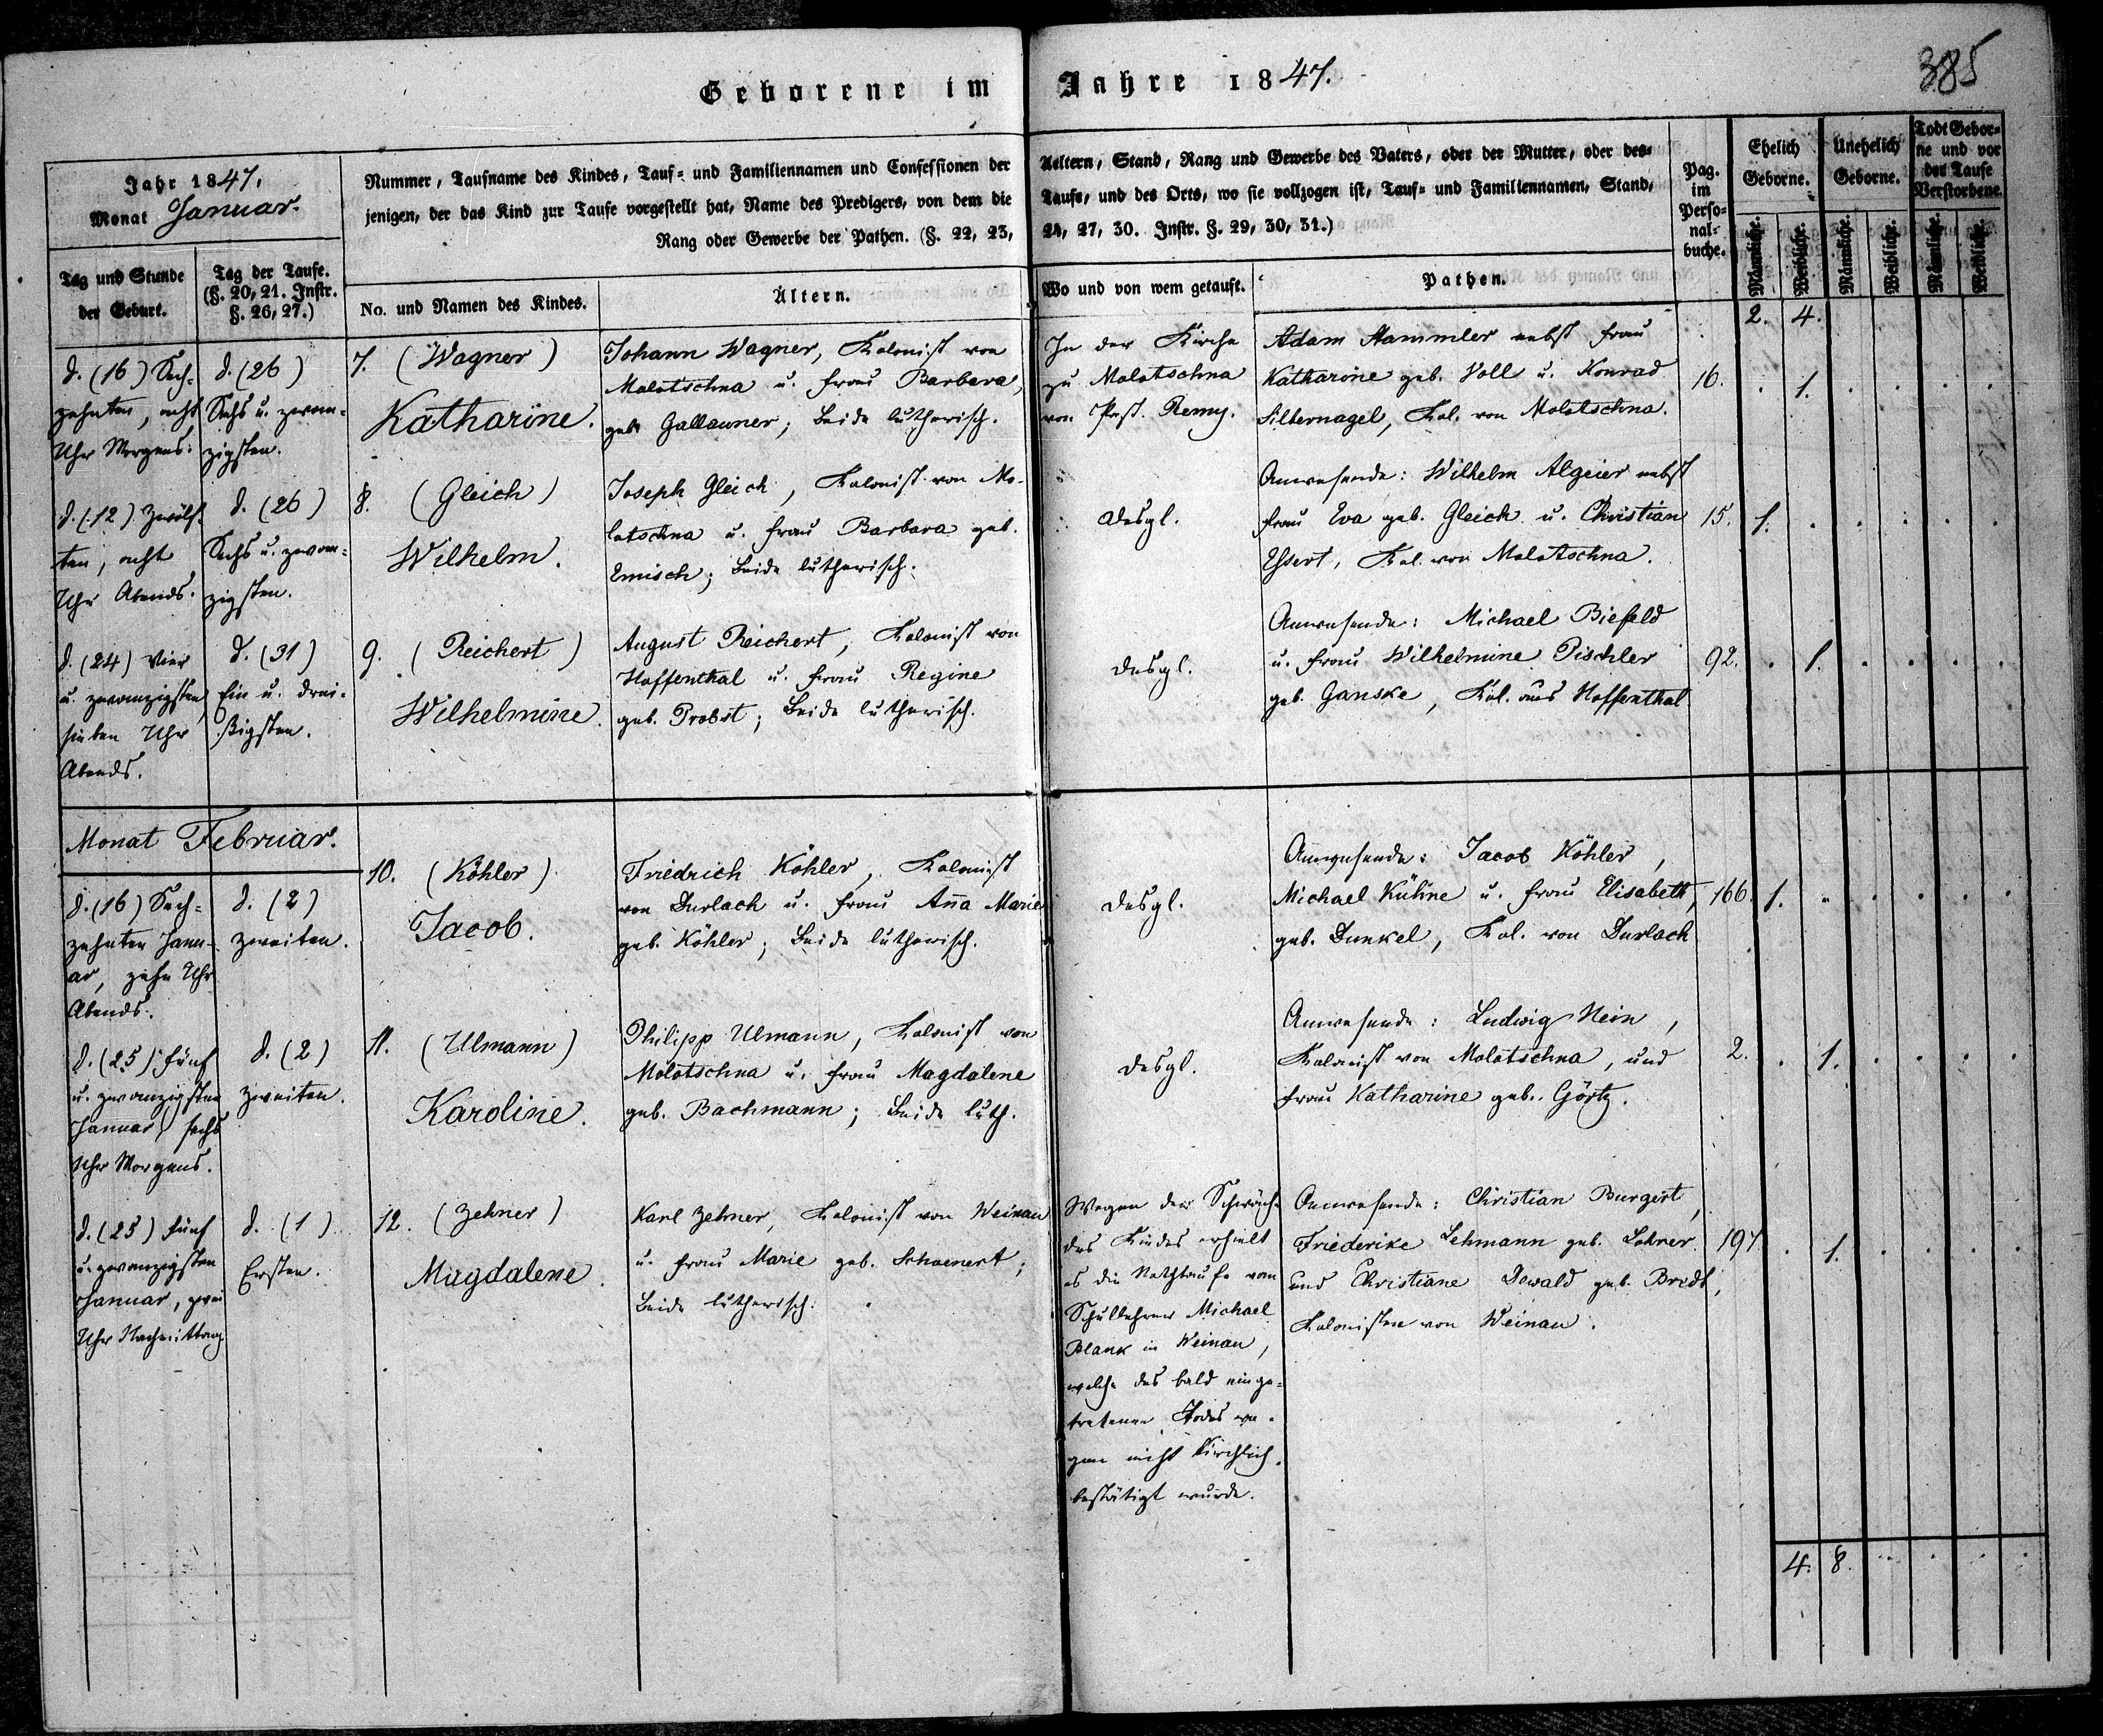 Geborene im Jahre 1847.
385
Jahr 1847.
Monat Januar.
Tag und Stunde
der Geburt.
Tag der Taufe.
(§. 20, 21. Instr.
§. 26, 27.)
Nummer, Taufname des Kindes, Tauf- und Familiennamen und Confessionen der
jenigen, der das Kind zur Taufe vorgestellt hat, Name des Predigers, von dem die
Rang oder Gewerbe der Pathen. (§. 22, 23,
No. und Namen des Kindes.
Ältern.
Aeltern, Stand, Rang und Gewerbe des Vaters, oder der Mutter, oder des-
Taufe, und des Orts, wo sie vollzogen ist, Tauf- und Familiennamen, Stand,
24, 27, 30. Instr. §. 29, 30, 31.)
Wo und von wem getauft.
Pathen.
Pag.
im
Perso-
nal-
buche.
Ehelich
Geborne.
Unehelich
Geborne.
Todt Gebor-
ne und vor
der Taufe
Verstorbene.
Männliche.
Weibliche.
Männliche.
Weibliche.
Männliche.
Weibliche.
2. 4.
d. (16) Sech-
zehnten, acht
Uhr Morgens.
d. (26)
Sechs u. zwan-
zigsten.
7. (Wagner)
Katharine.
Johann Wagner, Kolonist von
Molotschna u. Frau Barbara,
geb. Gallawner; beide lutherisch.
In der Kirche
zu Molotschna
von Past. Remy.
Adam Hammler nebst Frau
Katharine geb. Voll u. Konrad
Silbernagel, Kol. von Molotschna.
16.
1.
d. (12) Zwölf-
ten, acht
Uhr Abends.
d. (26)
Sechs u. zwan-
zigsten.
8. (Gleich)
Wilhelm.
Joseph Gleich, Kolonist von Mo-
lotschna u. Frau Barbara geb.
Emisch; beide lutherisch.
desgl.
Anwesende: Wilhelm Algeier nebst
Frau Eva geb. Gleich u. Christian
Kol. von Molotschna.
15.
1.
d. (24) Vier
u. zwanzigsten
sieben Uhr
Abends.
d. (31)
Ein u. drei-
ßigsten.
9. (Reichert)
Wilhelmine.
August Reichert, Kolonist von
Hoffenthal u. Frau Regine
geb. Probst; beide lutherisch.
desgl.
Anwesende: Michael Biefeld
u. Frau Wilhelmine Pischler
geb. Ganske, Kol. aus Hoffenthal
92.
1.
Monat Februar.
d. (16) Sech-
zehnten Janu-
ar, zehn Uhr
Abends.
d. (2)
zweiten.
10. (Köhler)
Jacob.
Friedrich Köhler, Kolonist
von Durlach u. Frau Anna Marie
geb. Köhler; beide lutherisch.
desgl.
Anwesende: Jacob Köhler,
Michael Kühne u. Frau Elisabeth,
geb. Dunkel, Kol. von Durlach
166.
1.
d. (25) fünf
u. zwanzigsten
Januar, sechs
Uhr Morgens.
d. (2)
zweiten.
11. (Ulmann)
Karoline.
Philipp Ulmann, Kolonist von
Molotschna u. Frau Magdalene
geb. Bachmann; beide luth.
desgl.
Anwesende: Ludwig Hein,
Kolonist von Molotschna, und
Frau Katharine geb. Görtz.
2.
1.
d. (25) fünf
u. zwanzigsten
Januar, zwei
Uhr Nachmittag.
d. (1)
Ersten.
12. (Zehner)
Magdalene.
Karl Zehner, Kolonist von Weinau
u. Frau Marie geb. Schoenert;
beide lutherisch.
Wegen der Schwäche
des Kindes erhielt
es die Nothtaufe vom
Schullehrer Michael
Blank in Weinau,
welche des bald einge-
tretenen Todes we-
gen nicht kirchlich
bestätigt wurde.
Anwesende: Christian Burgert,
Friederike Lehmann geb. Lohrer
und Christiane Dewald geb. Bredt,
Kolonisten von Weinau.
197
1.
4. 8.